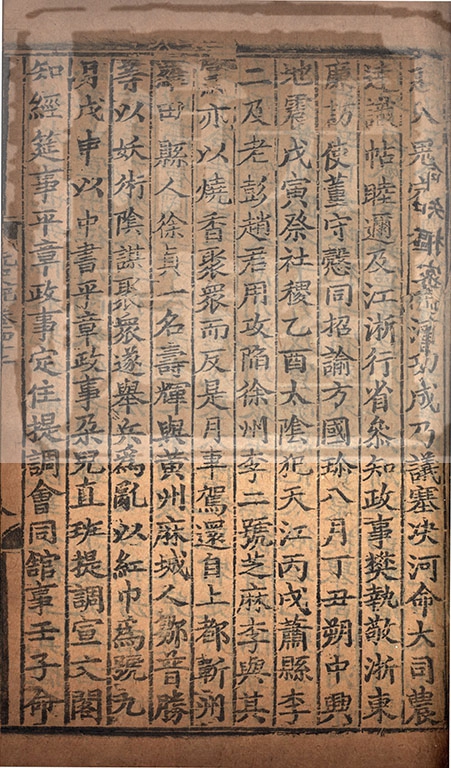 功成乃議塞決河命大司農
達識帖睦邇及江浙行省參知政事樊執敬浙東
廉訪使董守慤同招諭方國珍八月丁丑朔中興
地震戊寅祭社稷乙酉太陰犯天江丙戌蕭縣李
二及老彭趙君用攻陷徐州李二號芝麻李與其
亦以燒香聚衆而反是月車駕還自上都蘄州
羅田縣人徐貞一名壽輝與黃州麻城人鄒普勝
等以妖術陰謀聚衆遂舉兵爲亂以紅巾爲號九
月戊申以中書平章政事朶兒直班提調宣文閣
知經筵事平章政事定住提調會同舘事壬子命